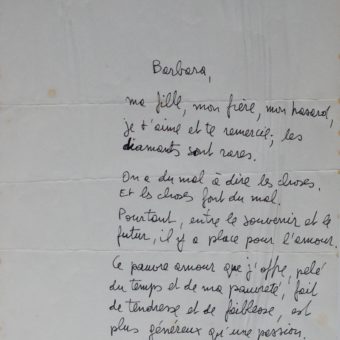 Barbara,
ma fille, mon frère, mon hasard,
je t'aime et te remercie; les
diamants sont rares.
On a du mal à dire les choses.
Et les choses font du mal.
Pourtant, entre le souvenir et le
futur, il y a place pour l'amour.
Ce pauvre amour que j'offre, pelé
du temps et de ma pauvreté, fait
de tendresse et de faiblesse, est
plus généreux qu'une passion.